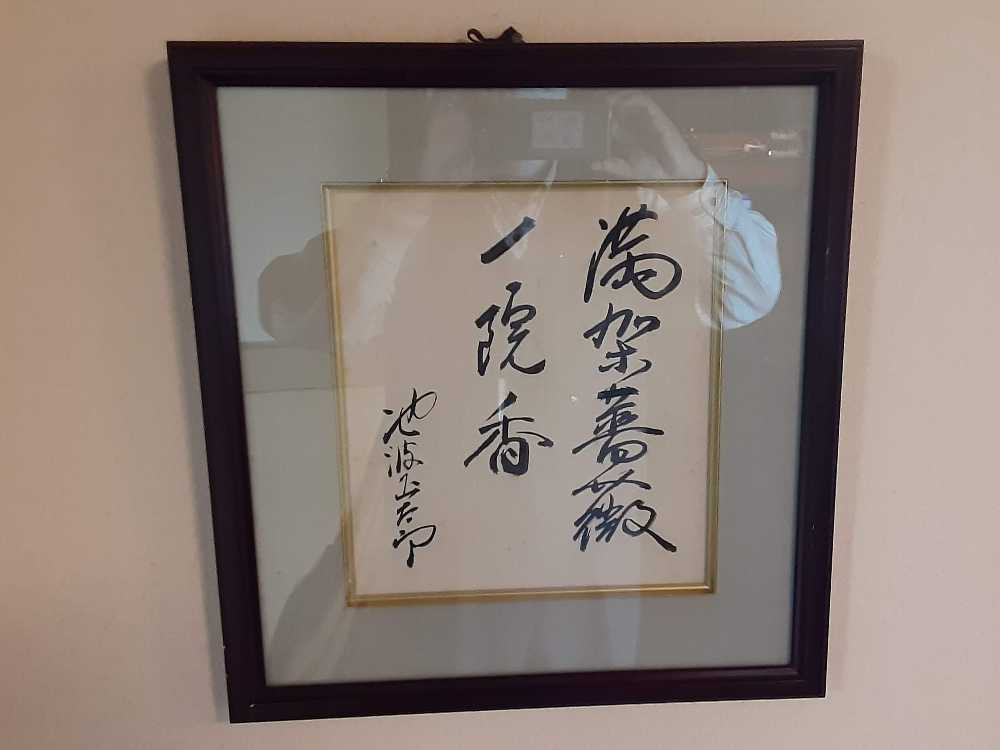 満架薔薇
一院香
池波正太郎